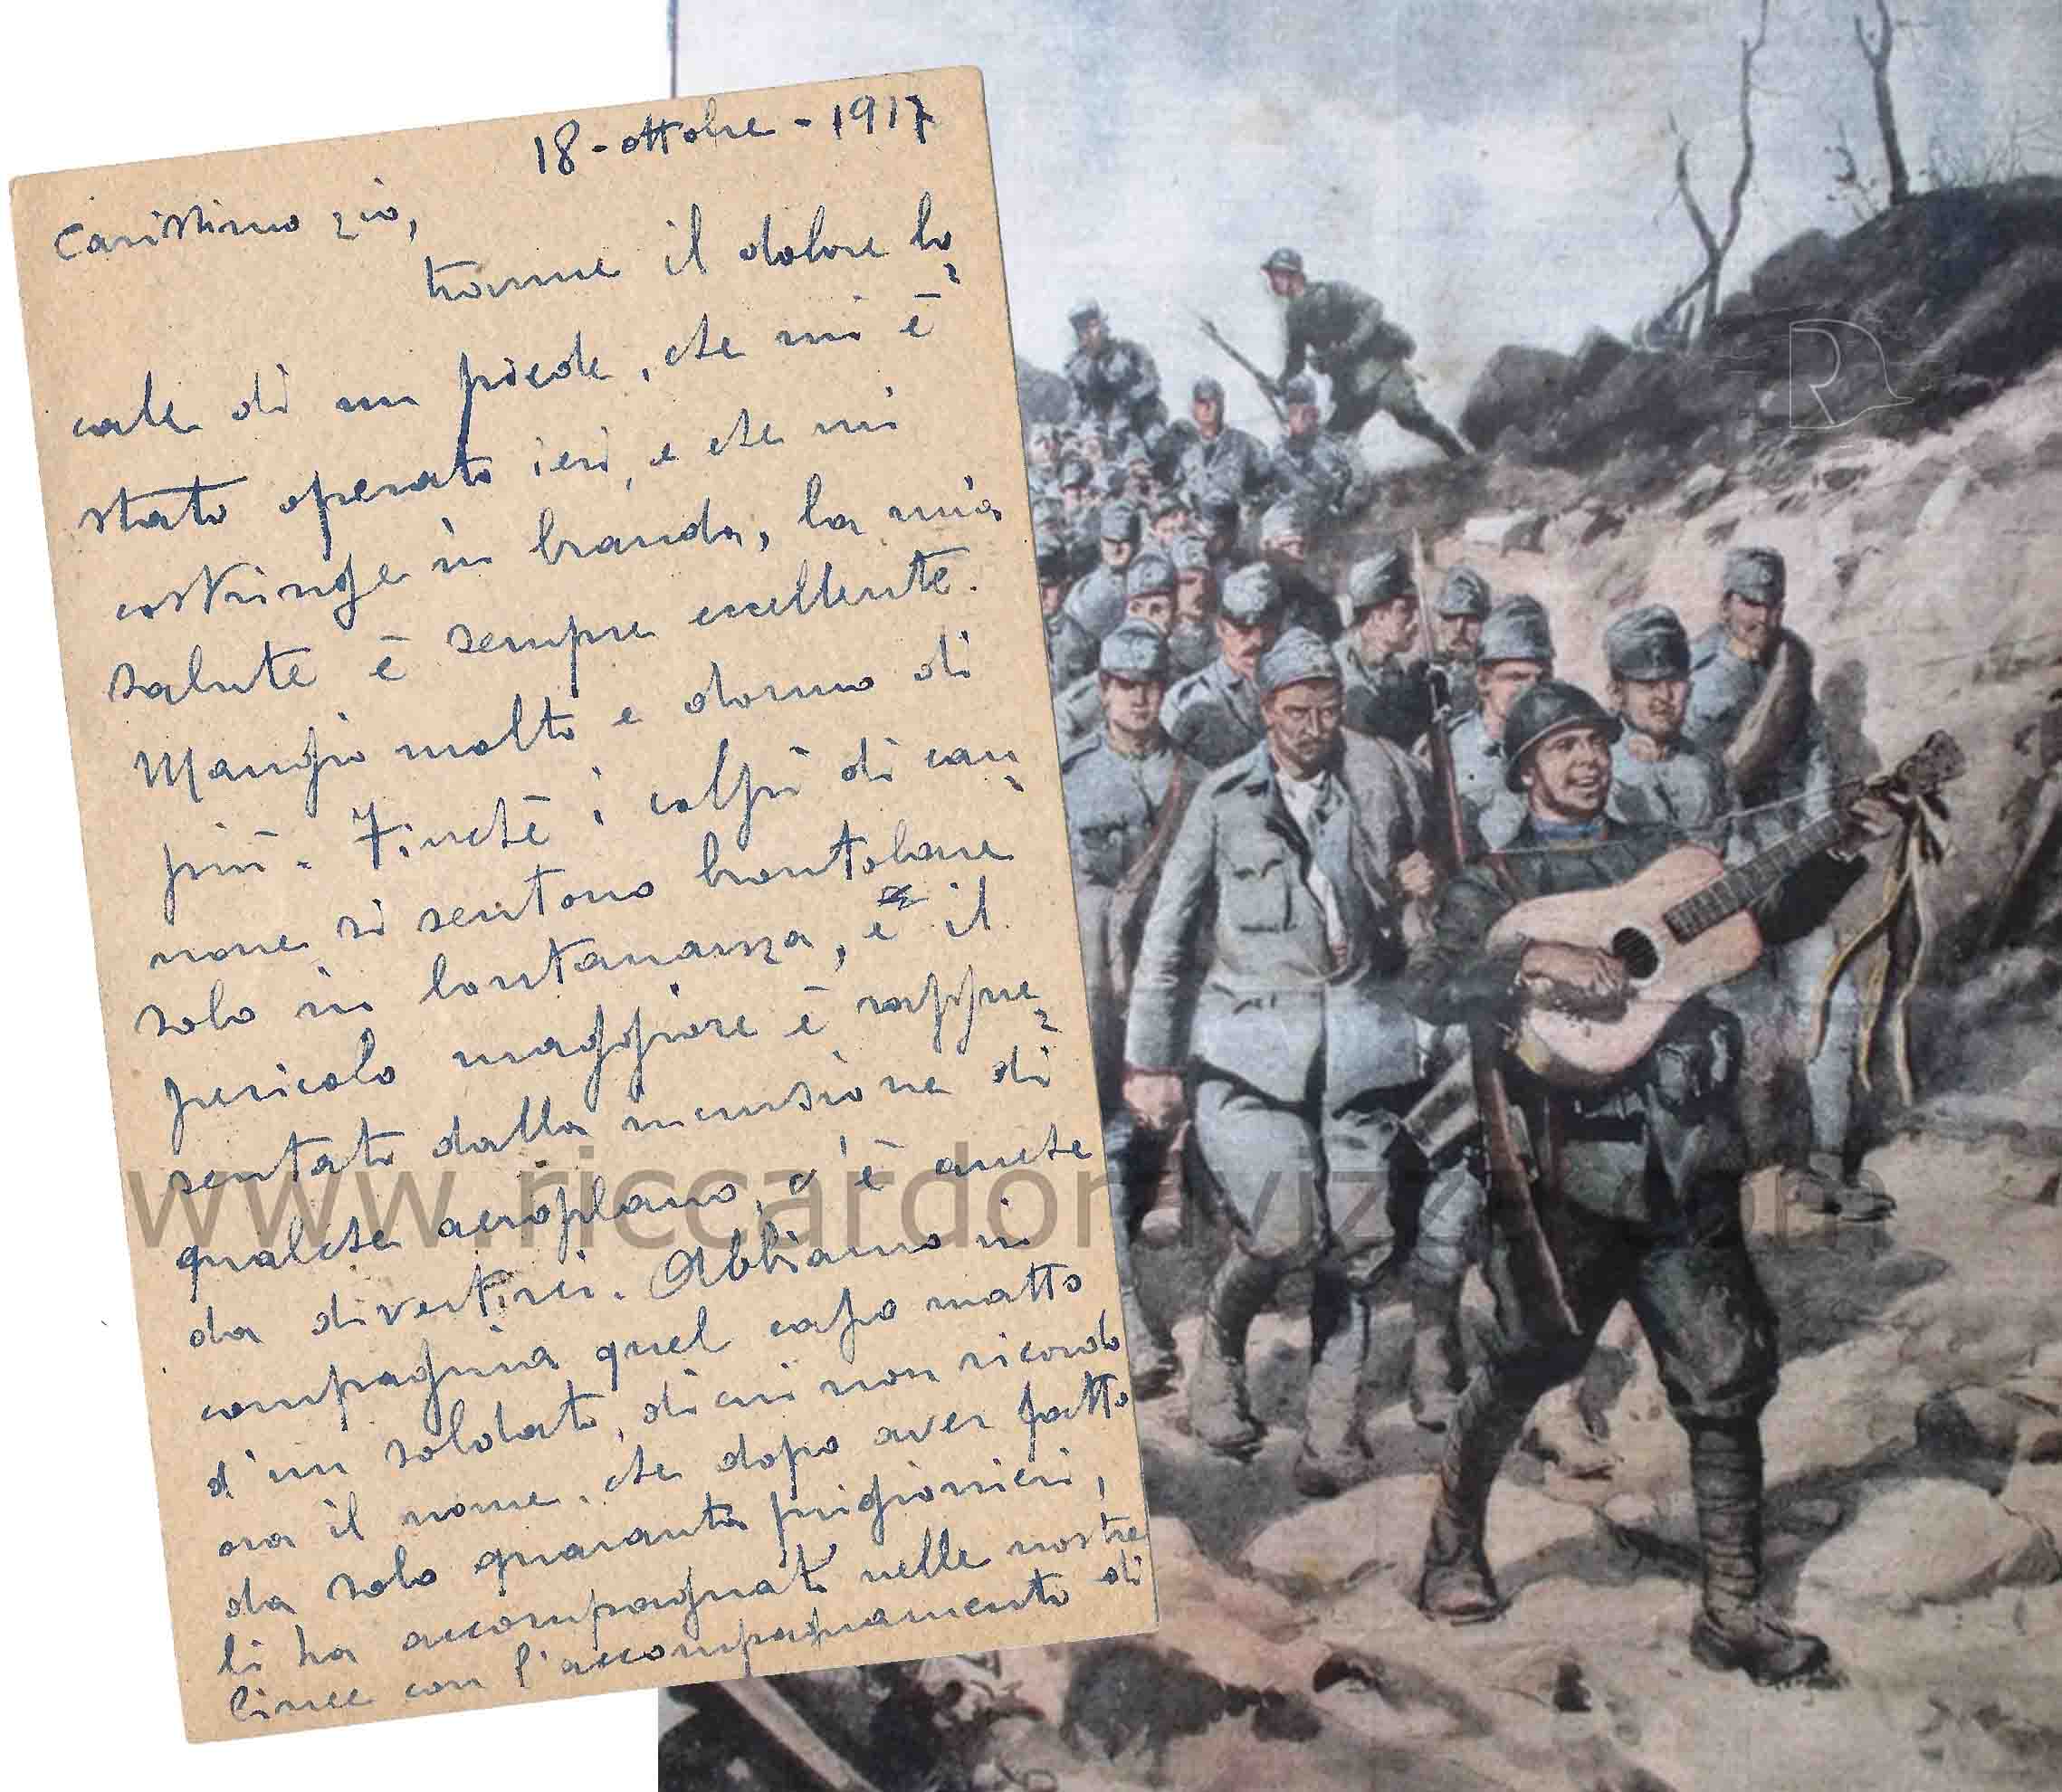 18 - ottobre - 1917
Carissimo zio,
tranne il dolore lo-
cale di un piede, che mi è
stato operato ieri, e che mi
costringe in branda, la mia
salute è sempre eccellente.
Mangio molto e dormo di
più. Finchè i colpi di can-
none si sentono brontolare
solo in lontananza, e il
pericolo maggiore è rappre-
sentato dalla incursione di
qualche aeroplano, c'è anche
da divertirci. Abbiamo in
compagnia quel capo matto
d'un soldato, di cui non ricordo
ora il nome, che dopo aver fatto
da solo quaranta prigionieri,
li ha accompagnati nelle nostre
linee con l'accompagnamento di
R